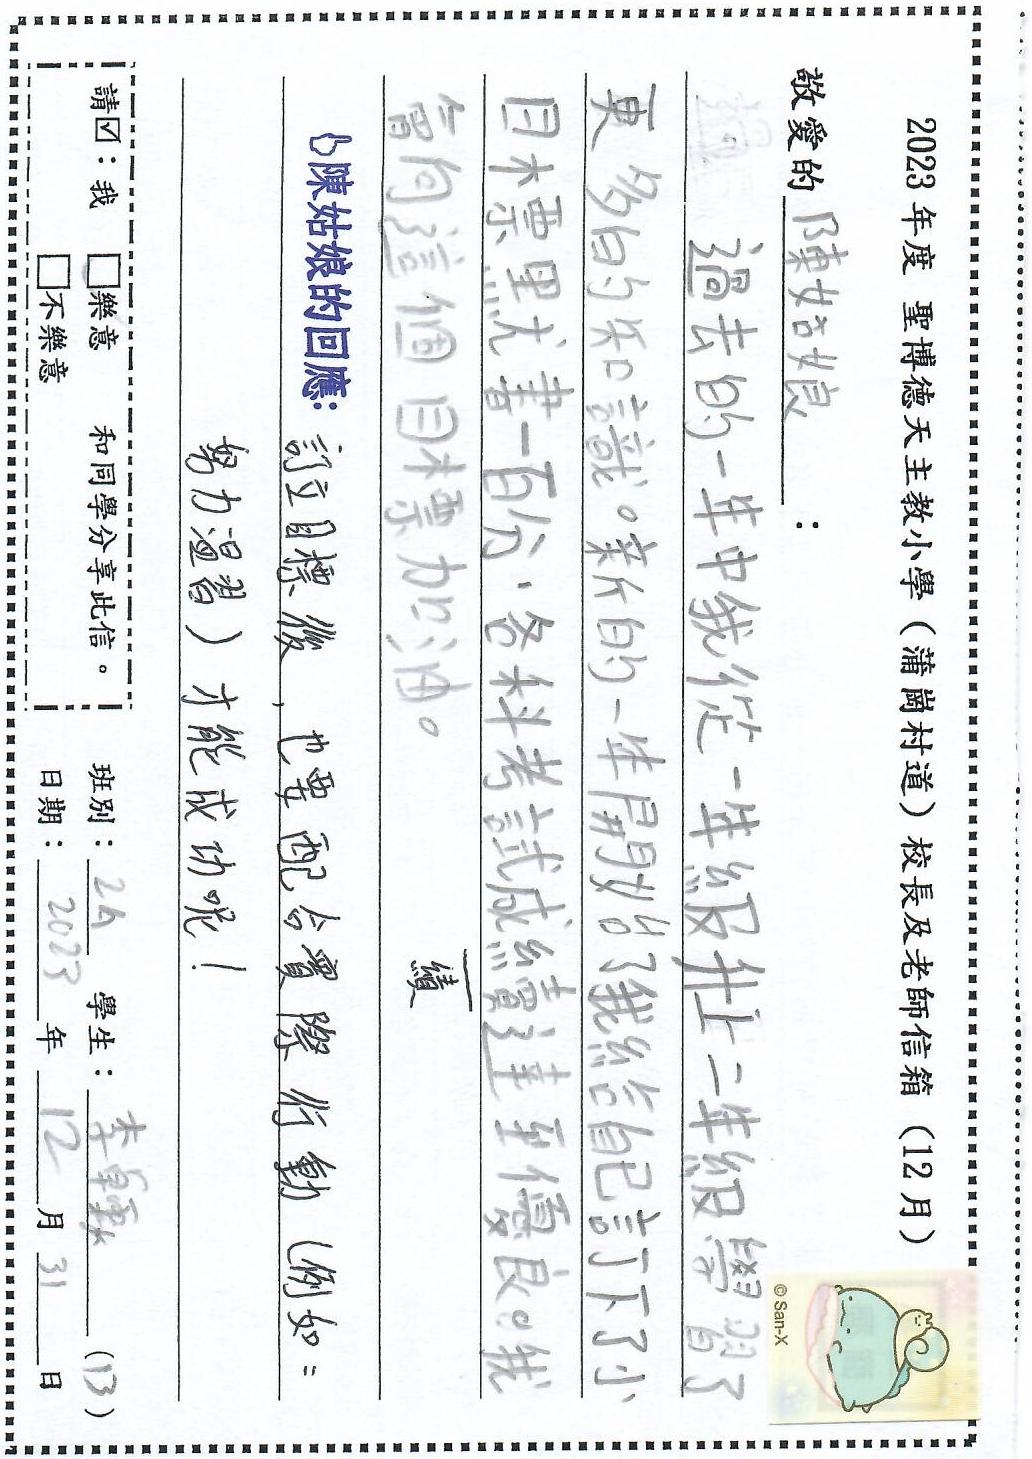 2023 年度 聖博德天主教小學（蒲崗村道）校長及老師信箱（12 月）
敬愛的 陳姑娘 ：
過去的一年中我從一年級升上二年級學習了
更多的知識。新的一年開始了我給自己訂下了小
目標默書一百分、各科考試成績達至優良。我
會向這個目標加油。
績
陳姑娘的回應：
訂立目標後，也要配合實際行動（例如：
努力溫習）才能成功呢！
請☑：我 □樂意 □不樂意 和同學分享此信。
班別： 2A 學生： 李 (13)
日期： 2023 年 12 月 31 日
© San-X